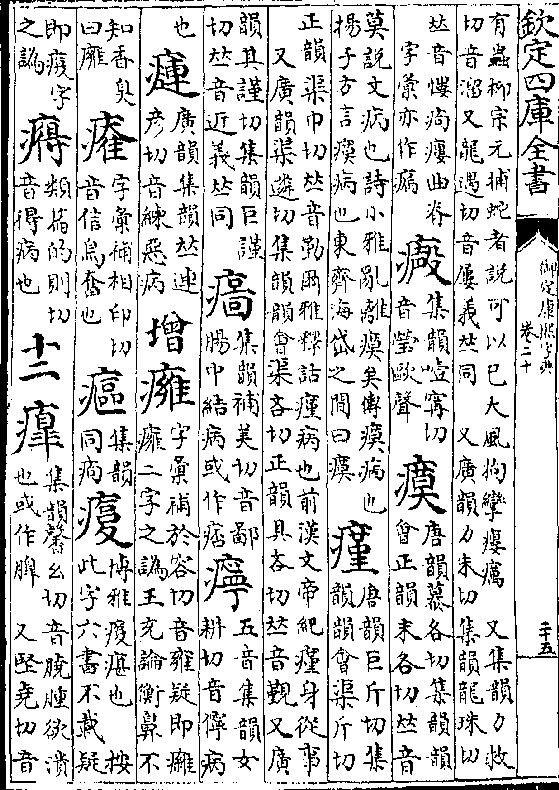 欽定四庫全書
御定康熙字典
卷二十
二十五
有蟲柳宗元捕蛇者說可以已大風拘攣瘻癘 又集韻力救
切音溜又龍遇切音屢義𠀤同 又廣韻力朱切集韻龍珠切
𠀤音慺痀瘻曲脊
字彙亦作瘺
集韻噎甯切
音瑩歐聲
瘼
唐韻慕各切集韻韻
會正韻末各切𠀤音
莫說文病也詩小雅亂離瘼矣傳瘼病也
揚子方言瘼病也東齊海岱之間曰瘼
瘽
唐韻巨斤切集
韻韻會渠斤切
正韻渠巾切𠀤音勤爾雅釋詁瘽病也前漢文帝紀瘽身從事
又廣韻渠遴切集韻韻會渠吝切正韻具吝切𠀤音覲又廣
韻其謹切集韻巨謹
切𠀤音近義𠀤同
集韻補美切音鄙
腸中結病或作痞
五音集韻女
耕切音儜病
也
廣韻集韻𠀤連
彥切音練惡病
增
字彙補於容切音雍疑即
癰二字之譌王充論衡鼻不
知香臭
曰癰
字彙補相印切
音信鳥奮也
集韻
同痀
博雅疽也 按
此字六書不載疑
即字
之譌
類篇的則切
音得病也
十二
集韻馨幺切音曉腫欲潰
也或作膮 又堅堯切音